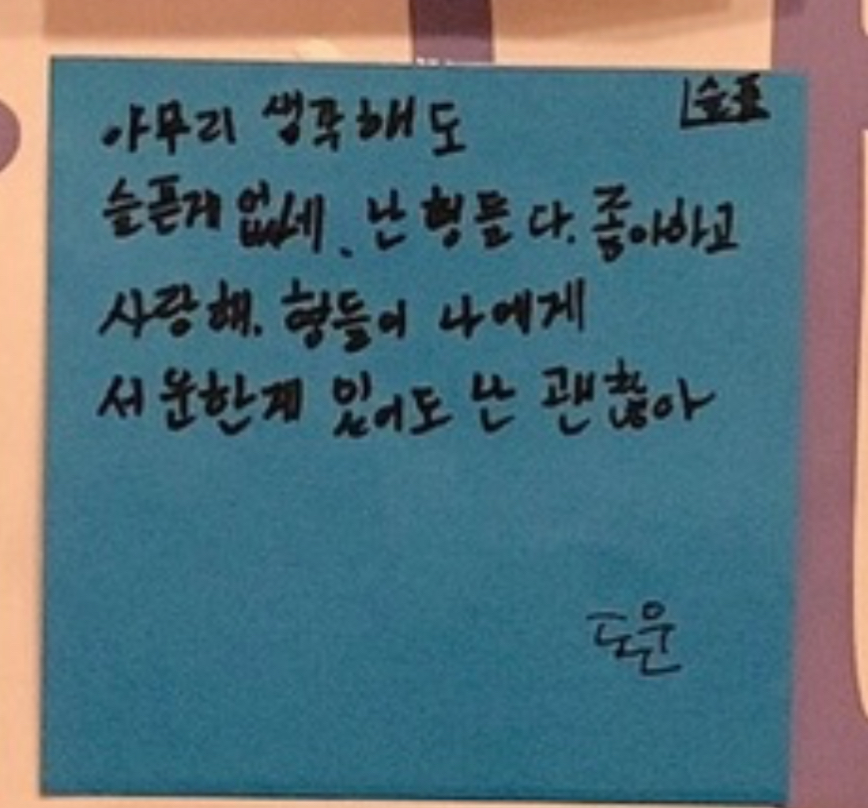 슬픔
아무리 생각해도
슬픈게 없네. 난 형들 다. 좋아하고
사랑해. 형들이 나에게
서운한게 있어도 난 괜찮아
도운